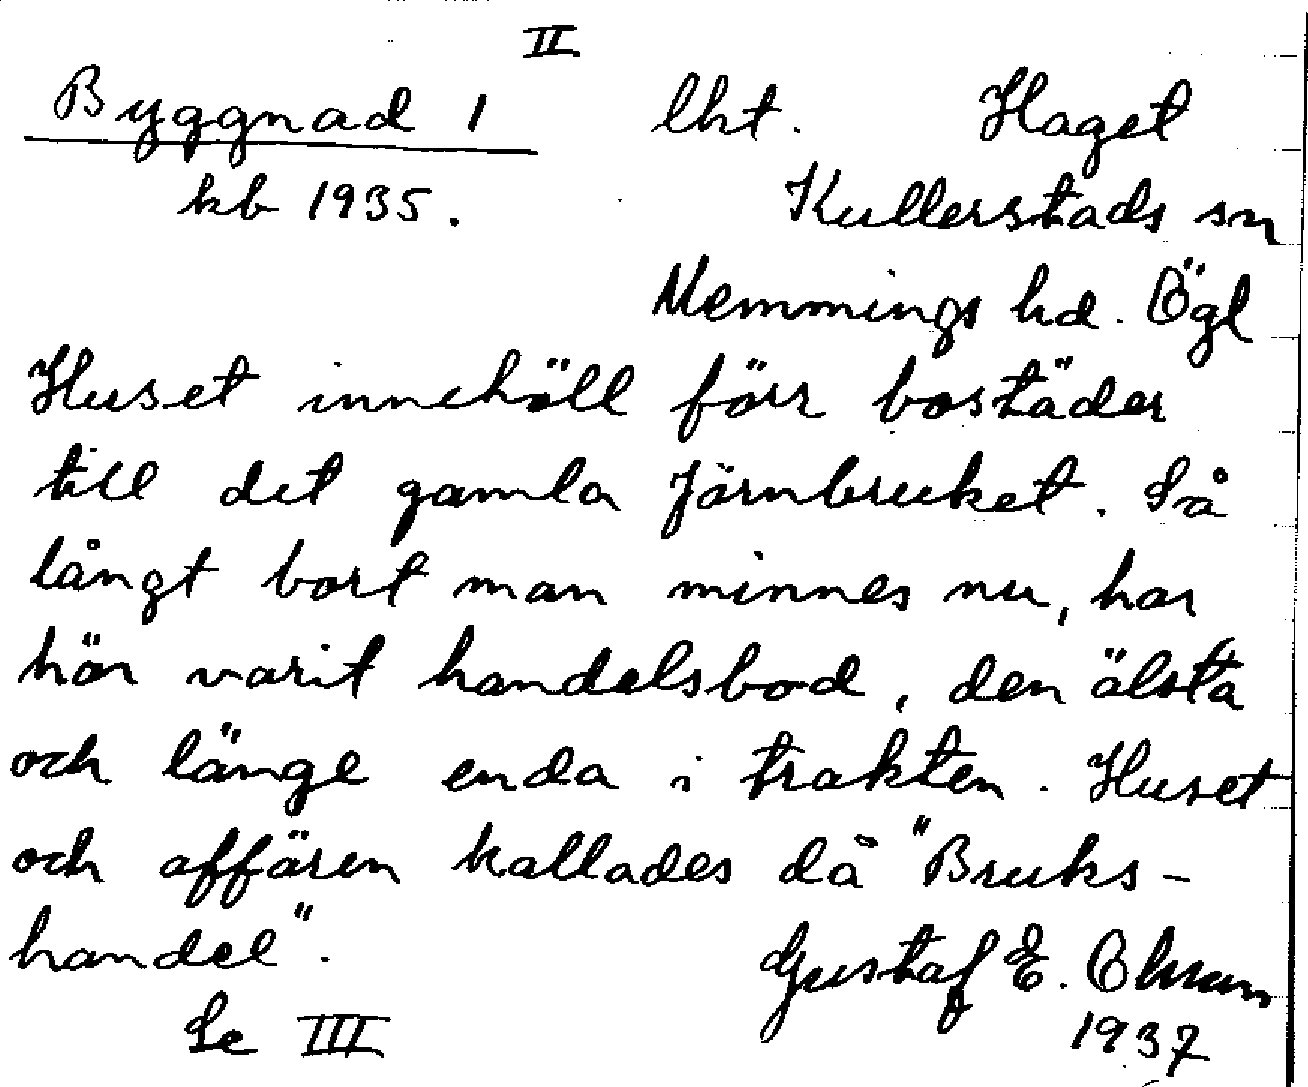 II
Byggnad 1 lht. Haget
kb 1935. Kullerstads sn
Memmings hd. Ögl
Huset innehöll förr bostäder
till det gamla Järnbruket. Så
långt bort man minnes nu, har
här varit handelsbod, den älsta
och länge enda i trakten. Huset
och affären kallades då "Bruks-
handel".
Gustaf E. Olsson
Se III 1937